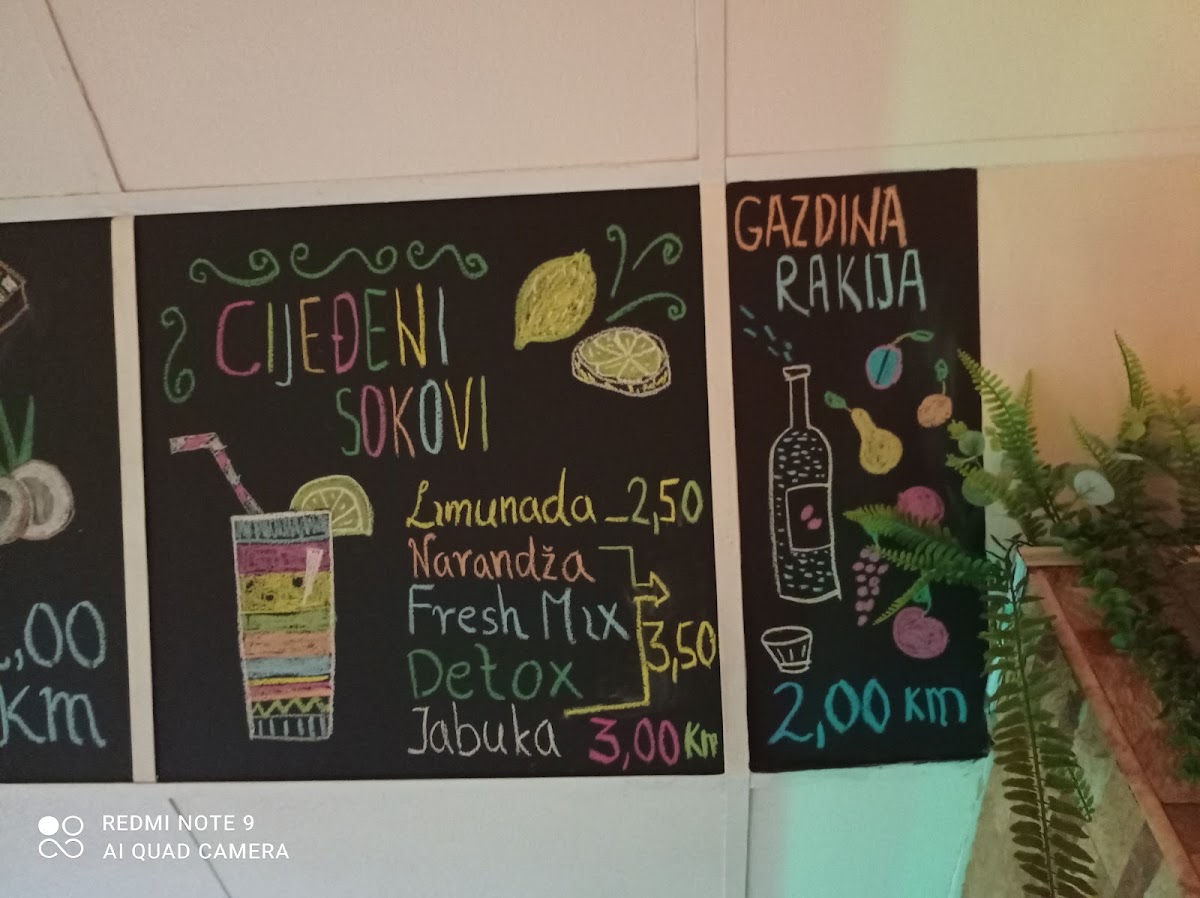 ,00
KM
CIJEĐENI
SOKOVI
Limunada - 2,50
Narandža
Fresh Mix
3,50
Detox
Jabuka 3,00 Km
GAZDINA
RAKIJA
2,00 KM
REDMI NOTE 9
AI QUAD CAMERA